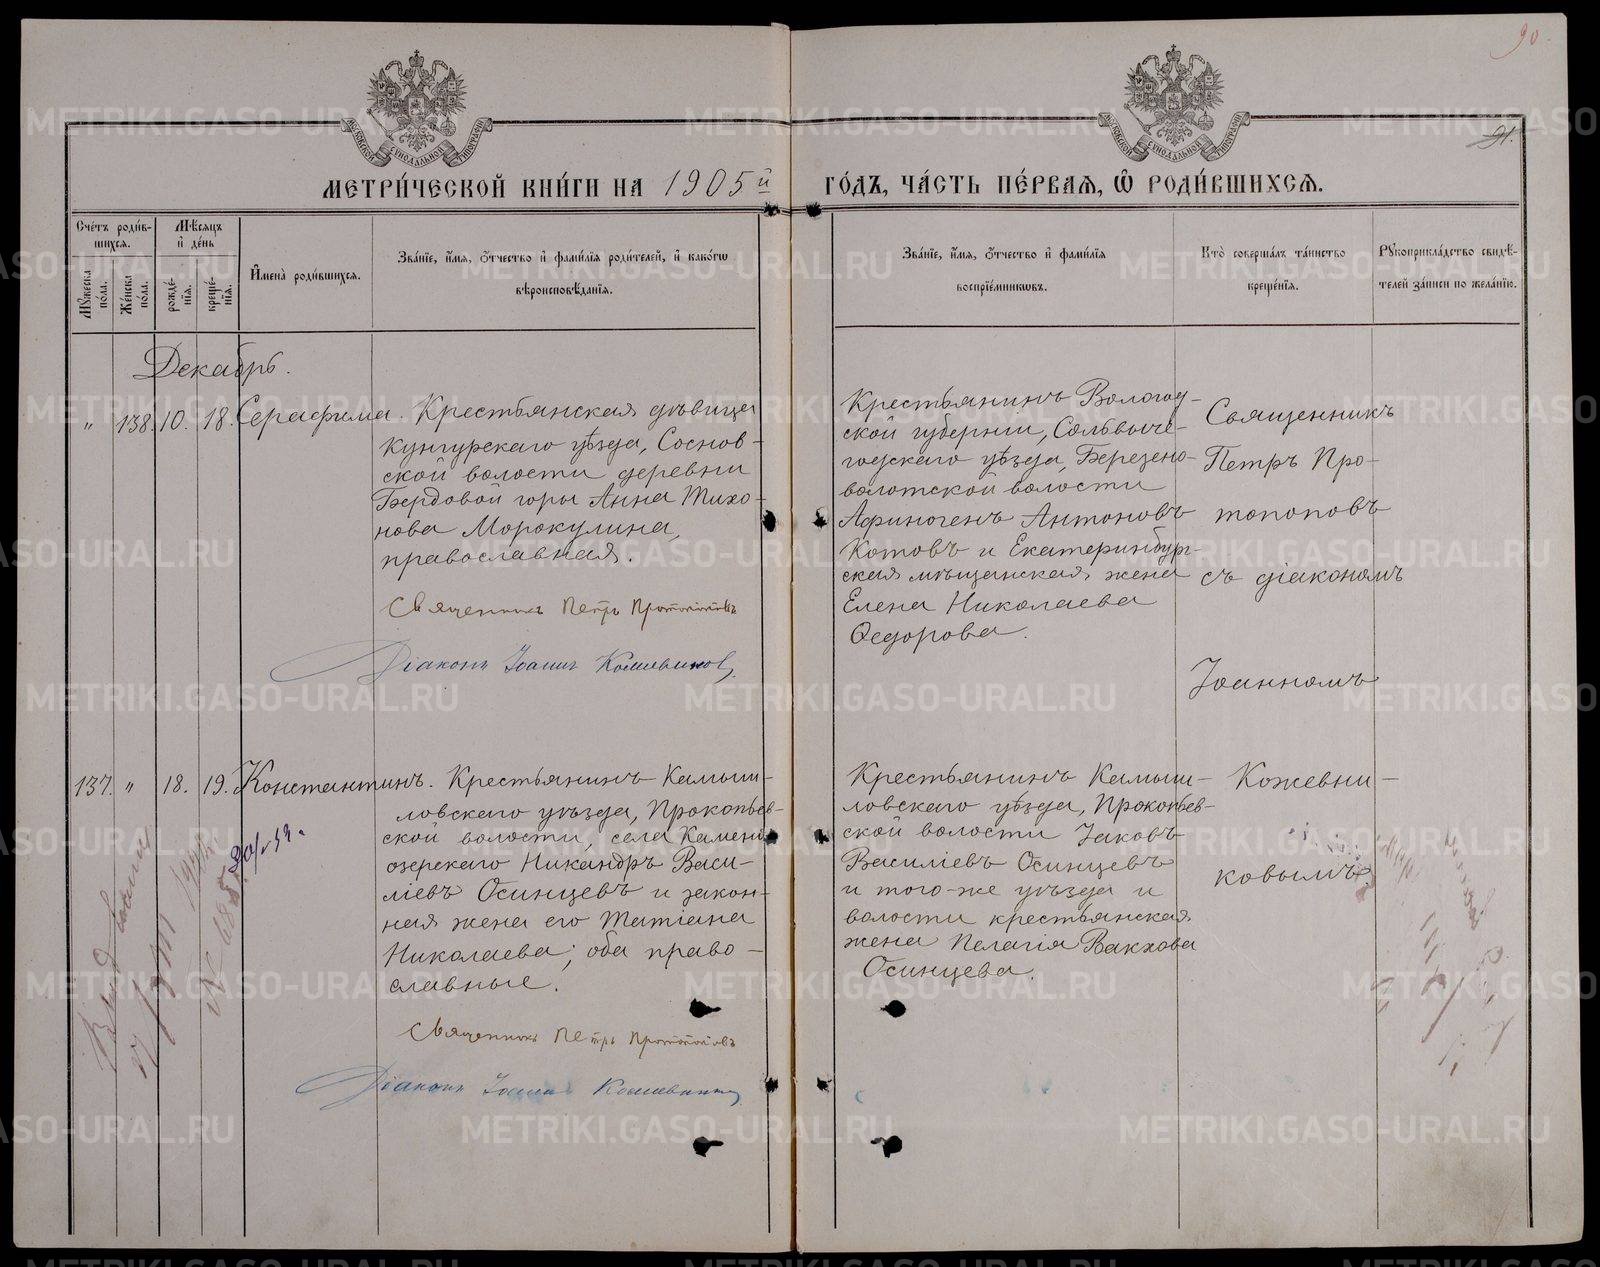 90.
91.
МОСКОВСКОЙ СѴНОДАЛЬНОЙ ТИПОГРАФІИ
МОСКОВСКОЙ СѴНОДАЛЬНОЙ ТИПОГРАФІИ
МЕТРИ́ЧЕСКОЙ КНИ́ГИ НА 1905й ГО́ДЪ, ЧА́СТЬ ПЕ́РВАѦ, Ѿ РОДИ́ВШИХСѦ.
Сче́тъ роди́в-
шихсѧ.
Мꙋ́жеска по́ла.
Же́нска по́ла.
Мѣ́сѧцъ
и҆ де́нь
рожде́-
нїѧ.
креще́-
нїѧ.
И҆мена̀ роди́вшихсѧ.
Зва́нїе, и҆́мѧ, ѻ҆́тчество и҆ фами́лїѧ роди́телей, и҆ како́гѡ
вѣроисповѣ́данїѧ.
Зва́нїе, и҆́мѧ, ѻ҆́тчество и҆ фами́лїѧ
воспрїе́мникѡвъ.
Кто̀ соверша́лъ та́инство
креще́нїѧ.
Рꙋкоприкла́дство свидѣ́-
телей за́писи по жела́нїю.
Декабрь.
" 138. 10. 18. Серафима.
Крестьянская дѣвица
Кунгурскаго уѣзда, Соснов-
ской волости деревни
Бердовой горы Анна Тихо-
нова Морокулина,
православная.
Священникъ Петръ Протопоповъ
Діаконъ Іоаннъ Кожевниковъ
Крестьянинъ Вологод-
ской губерніи, Сольвыче-
годскаго уѣзда, Березено-
волотской волости
Афиногенъ Антоновъ
Котовъ и Екатеринбург-
ская мѣщанская жена
Елена Николаева
Ѳедорова.
Священникъ
Петръ Про-
топоповъ
съ діакономъ
Іоанномъ
Кожевни-
ковымъ
137. " 18. 19. Константинъ.
Крестьянинъ Камыш-
ловскаго уѣзда, Прокопьев-
ской волости, села Камено-
озерскаго Никандръ Васи-
ліевъ Осинцевъ и закон-
ная жена его Татіана
Николаева; оба право-
славные.
Священникъ Петръ Протопоповъ
Діаконъ Іоаннъ Кожевниковъ
Крестьянинъ Камыш-
ловскаго уѣзда, Прокопьев-
ской волости Іаковъ
Василіевъ Осинцевъ
и того-же уѣзда и
волости крестьянская
жена Пелагія Вакхова
Осинцева.
METRIKI.GASO-URAL.RU